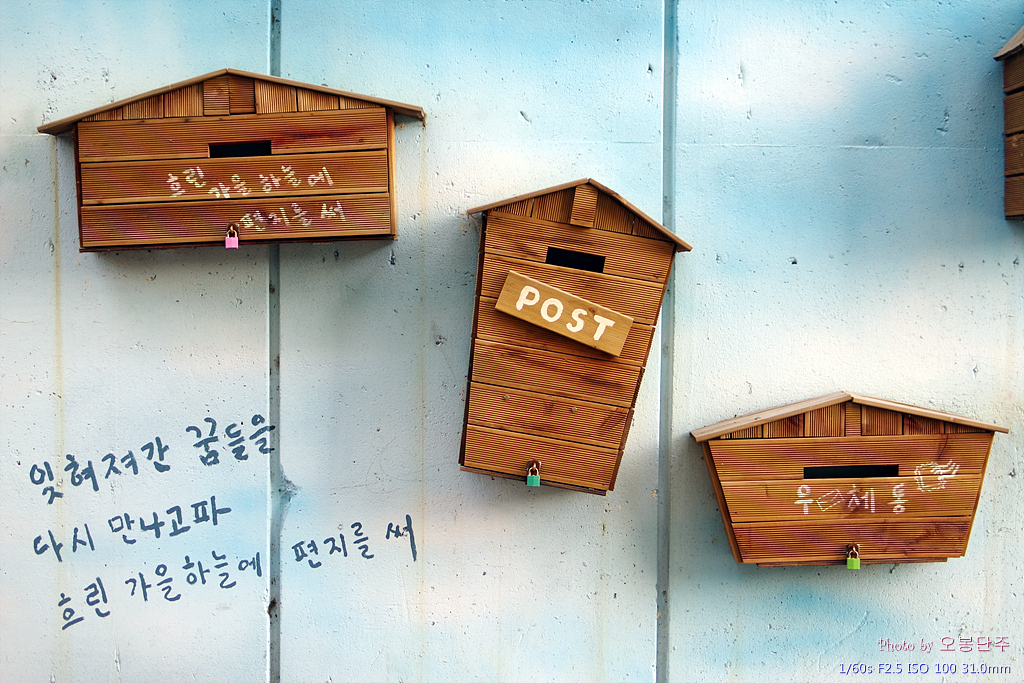 흐린 가을 하늘에
편지를 써
POST
우체통
잊혀져간 꿈들을
다시 만나고파
흐린 가을하늘에 편지를 써
Photo by 오봉단주
1/60s F2.5 ISO 100 31.0mm